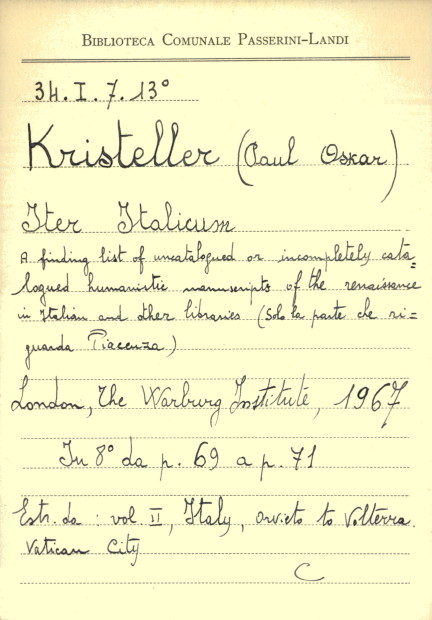 BIBLIOTECA COMUNALE PASSERINI-LANDI
34. I. 7. 13°
Kristeller (Paul Oskar)
Iter Italicum
A finding list of uncatalogued or incompletely cata=
logued humanistic manuscripts of the renaissance
in Italian and other libraries (Solo la parte che ri=
guarda Piacenza.)
London, The Warburg Institute, 1967
In 8° da p. 69 a p. 71
Estr. da : vol. II, Italy, Orvieto to Volterra.
Vatican City
C